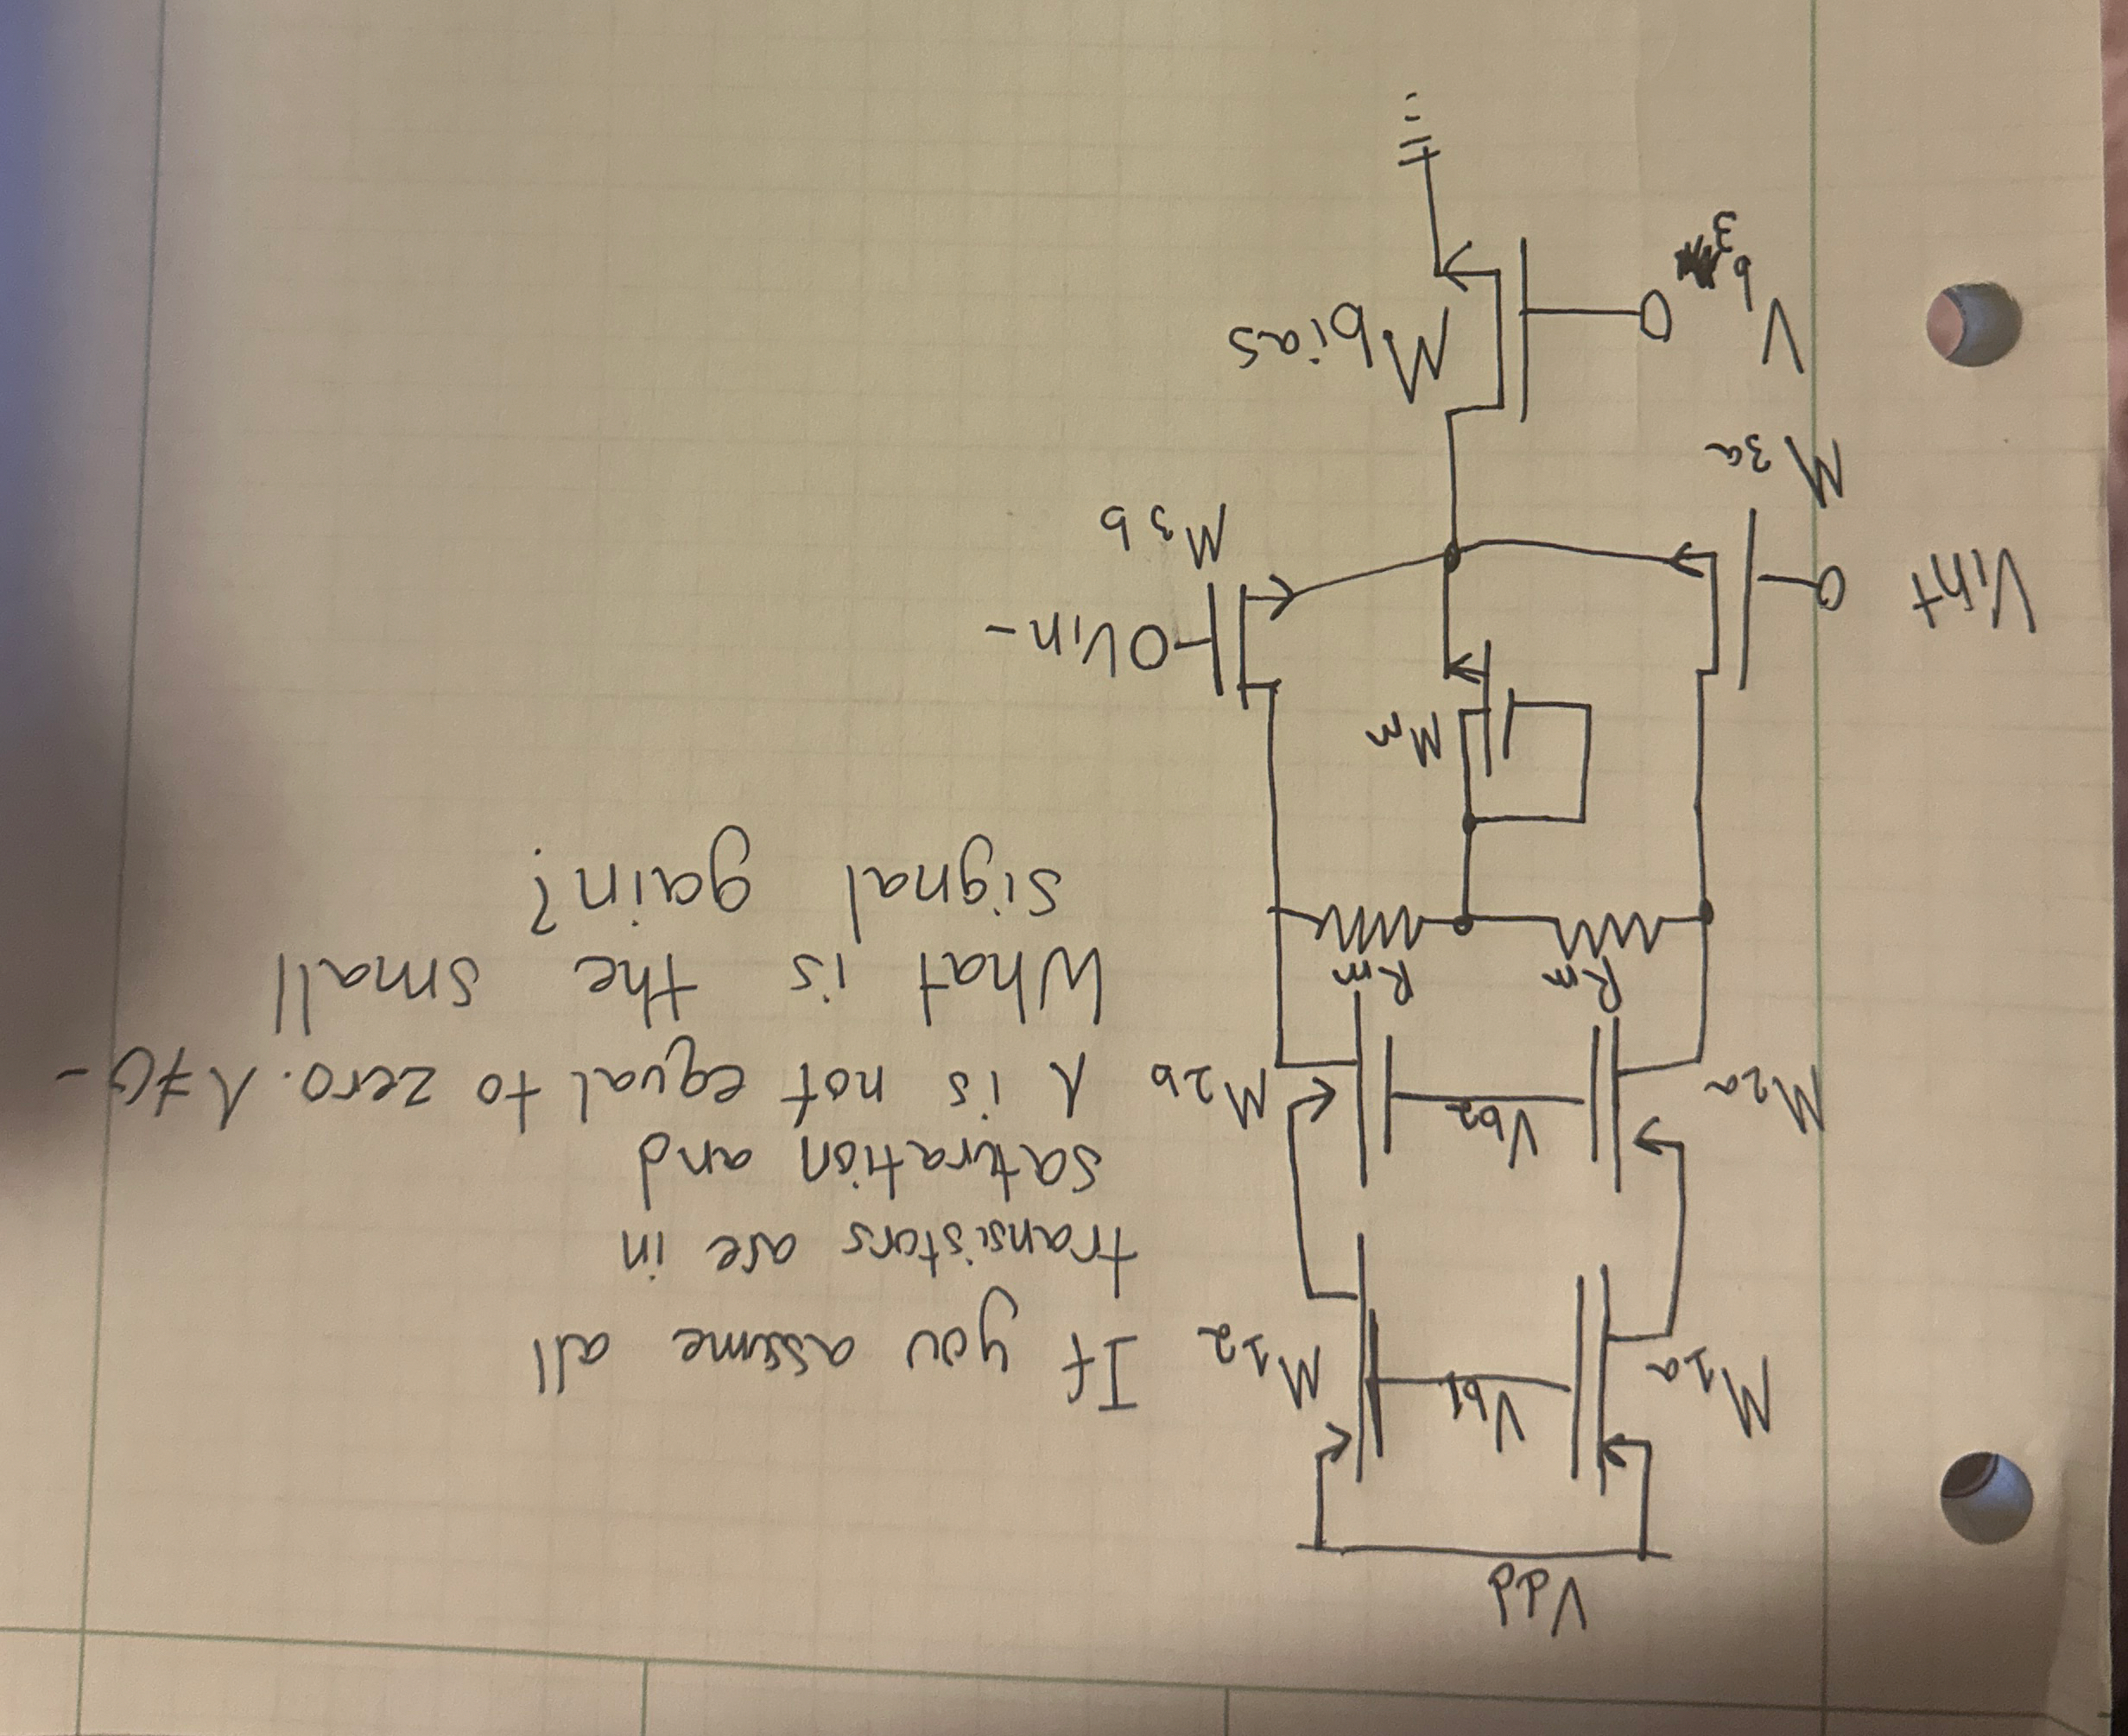 Vdd
M1a
Vb1
M12
M2a
Vb2
M2b
Rm
Rm
Mm
Vin+
Vin-
M3a
M3b
Vb3
Mbias
If you assume all
transistors are in
satration and
λ is not equal to zero. λ≠0-
What is the small
signal gain?